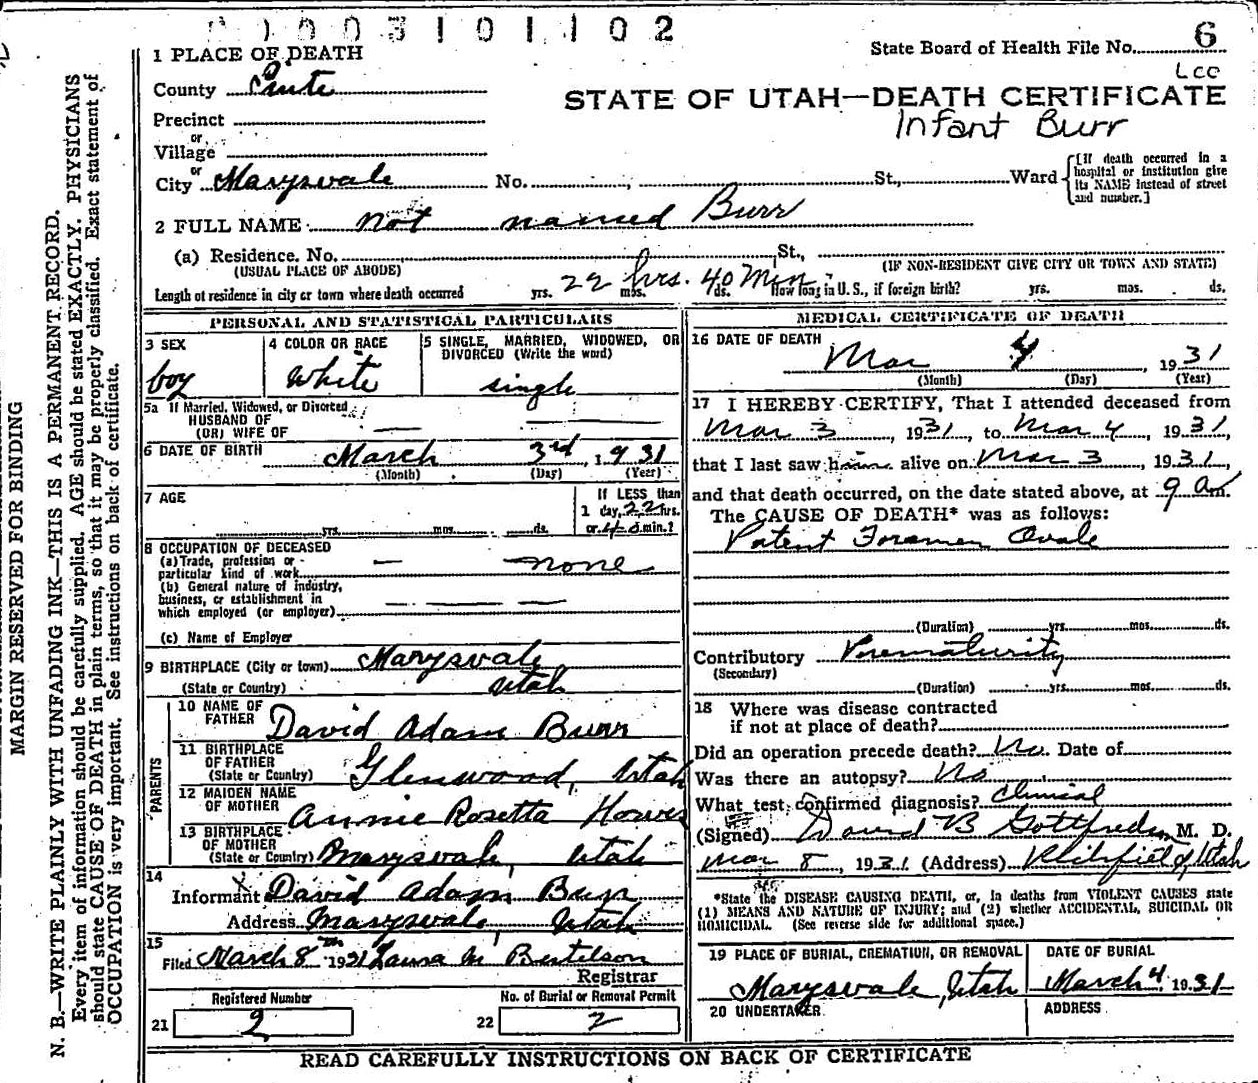 0003101102
State Board of Health File No. 6
Lcc
STATE OF UTAH—DEATH CERTIFICATE
Infant Burr
1 PLACE OF DEATH
County Piute
Precinct
or
Village
or
City Marysvale No. , St., Ward
[If death occurred in a hospital or institution give its NAME instead of street and number.]
2 FULL NAME not named Burr
(a) Residence. No. St.,
(USUAL PLACE OF ABODE) (IF NON-RESIDENT GIVE CITY OR TOWN AND STATE)
Length of residence in city or town where death occurred yrs. 22 hrs. mos. 40 Min. ds. How long in U.S., if foreign birth? yrs. mos. ds.
PERSONAL AND STATISTICAL PARTICULARS
3 SEX
boy
4 COLOR OR RACE
White
5 SINGLE, MARRIED, WIDOWED, OR DIVORCED (Write the word)
single
5a If Married, Widowed, or Divorced
HUSBAND OF
(OR) WIFE OF —
6 DATE OF BIRTH March 3rd, 1931
(Month) (Day) (Year)
7 AGE
yrs. mos. ds.
If LESS than
1 day, 22 hrs.
or 40 min.?
8 OCCUPATION OF DECEASED
(a) Trade, profession or
particular kind of work — none
(b) General nature of industry,
business, or establishment in
which employed (or employer) — — —
(c) Name of Employer
9 BIRTHPLACE (City or town) Marysvale
(State or Country) Utah
PARENTS
10 NAME OF FATHER David Adam Burr
11 BIRTHPLACE OF FATHER
(State or Country) Glenwood, Utah
12 MAIDEN NAME OF MOTHER Annie Rosetta Howes
13 BIRTHPLACE OF MOTHER
(State or Country) Marysvale, Utah
14
Informant X David Adam Burr
Address Marysvale, Utah
15
Filed March 8th 1931 Laura M Bertelson
Registrar
Registered Number
21 2
No. of Burial or Removal Permit
22 2
MEDICAL CERTIFICATE OF DEATH
16 DATE OF DEATH
Mar 4, 1931
(Month) (Day) (Year)
17 I HEREBY CERTIFY, That I attended deceased from
Mar 3, 1931, to Mar 4, 1931,
that I last saw him alive on Mar 3, 1931,
and that death occurred, on the date stated above, at 9 am.
The CAUSE OF DEATH* was as follows:
Patent Foramen Ovale
(Duration) yrs. mos. ds.
Contributory Prematurity
(Secondary)
(Duration) yrs. mos. ds.
18 Where was disease contracted
if not at place of death?
Did an operation precede death? No. Date of
Was there an autopsy? No
What test confirmed diagnosis? Clinical
(Signed) David B Gottfredson M. D.
Mar 8, 1931 (Address) Richfield, Utah
*State the DISEASE CAUSING DEATH, or, in deaths from VIOLENT CAUSES state
(1) MEANS AND NATURE OF INJURY; and (2) whether ACCIDENTAL, SUICIDAL OR
HOMICIDAL. (See reverse side for additional space.)
19 PLACE OF BURIAL, CREMATION, OR REMOVAL
Marysvale, Utah
DATE OF BURIAL
March 4 1931
20 UNDERTAKER
ADDRESS
READ CAREFULLY INSTRUCTIONS ON BACK OF CERTIFICATE
MARGIN RESERVED FOR BINDING
N. B.—WRITE PLAINLY WITH UNFADING INK—THIS IS A PERMANENT RECORD.
Every item of information should be carefully supplied. AGE should be stated EXACTLY. PHYSICIANS
should state CAUSE OF DEATH in plain terms, so that it may be properly classified. Exact statement of
OCCUPATION is very important. See instructions on back of certificate.